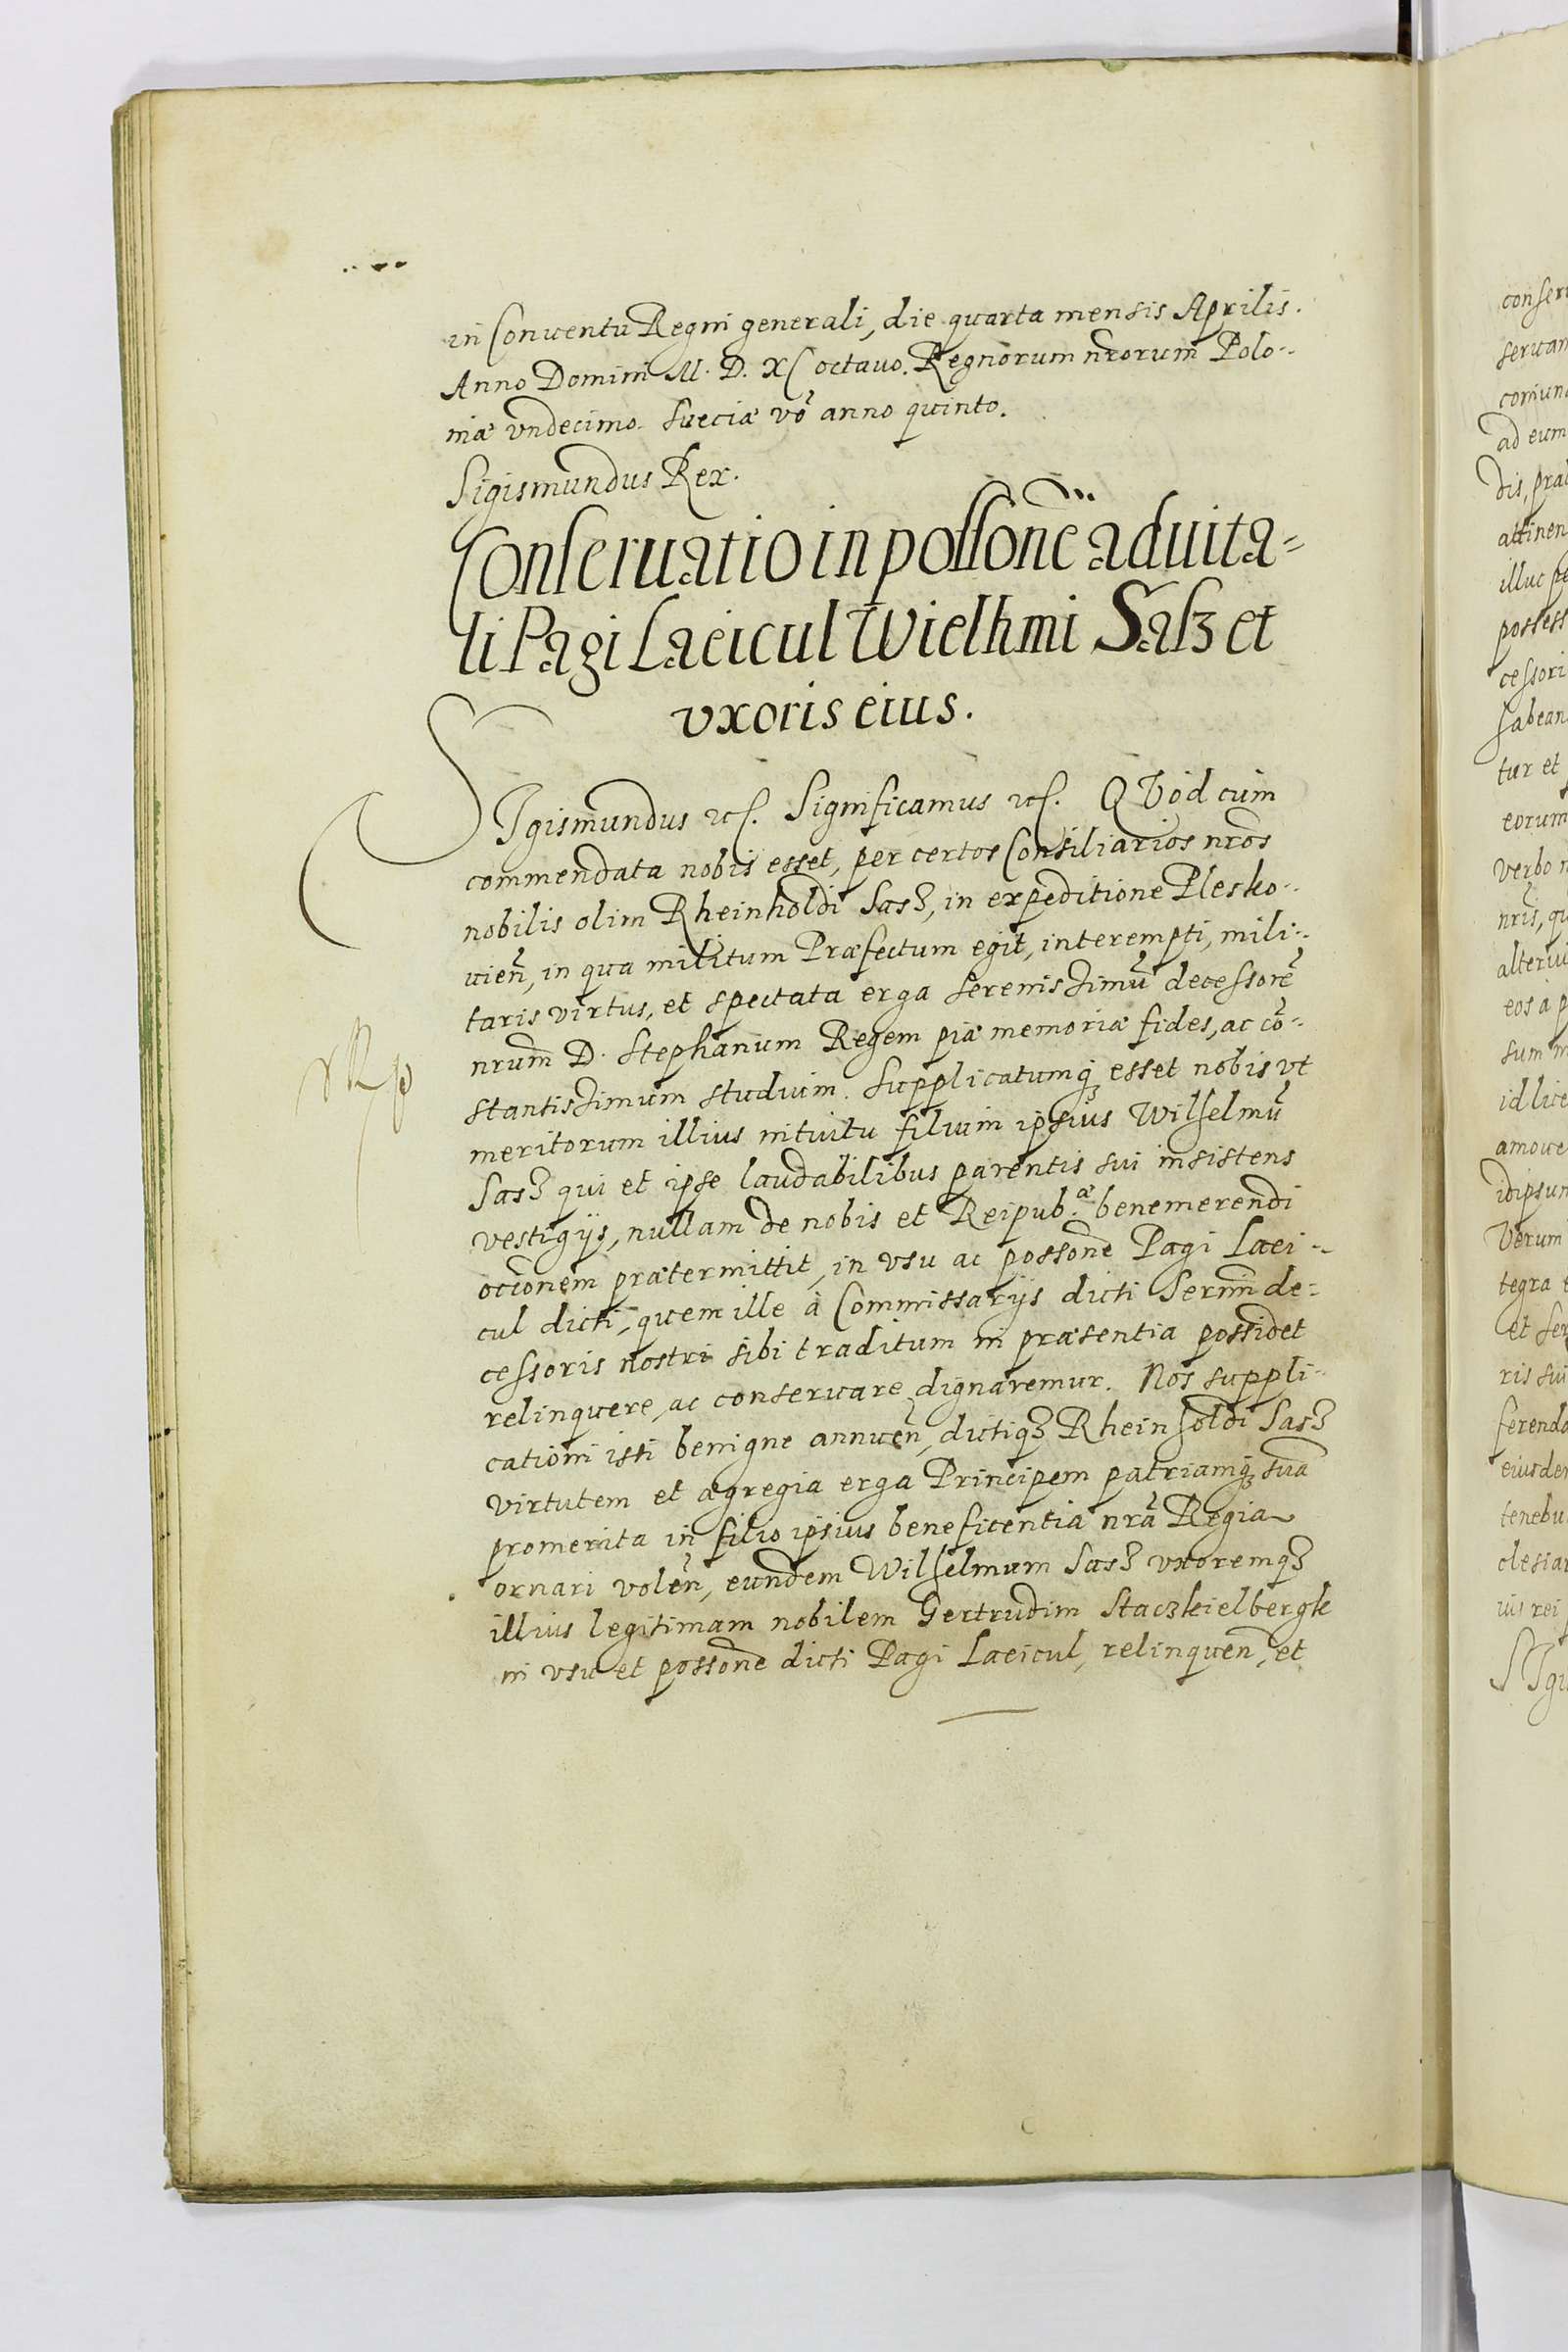 in Conventu Regni generali, die quarta mensis Aprilis.
Anno Domini M. D. XC octauo. Regnorum nrorum Polo-
niæ vndecimo. Sueciæ vo anno quinto.
Sigismundus Rex.
Conseruatio in possone aduita=
li Pagi Laeicul Wielhmi Sasz et
vxoris eius.
SIgismundus etc. Significamus etc. QVod cum
commendata nobis esset, per certos Consiliarios nros
nobilis olim Rheinholdi Sasz, in expeditione Plesko-
uien, in qua militum Præfectum egit, interempti, mili-
taris virtus, et spectata erga Serenissimu decessore
nrum D. Stephanum Regem piæ memoriæ fides, ac co-
stantissimum studium. Supplicatumq esset nobis vt
meritorum illius intuitu filium ipsius Wilhelmu
Sasz qui et ipse laudabilibus parentis sui insistens
vestigijs, nullam de nobis et Reipub.æ benemerendi
occionem prætermittit, in vsu ac possone Pagi Laei-
cul dicti, quem ille à Commissarijs dicti Sermi de-
cessoris nostri sibi traditum in præsentia possidet
relinquere, ac conseruare dignaremur. Nos suppli-
cationi isti benigne annuen, dictiqz Rheinholdi Sasz
virtutem et ægregia erga Principem patriamq sua
promerita in filio ipsius beneficentia nra Regia
ornari volen, eundem Wilhelmum Sasz vxoremqz
illius legitimam nobilem Gertrudim Staczkielbergk
in vsu et possone dicti Pagi Laeicul, relinquen, et
conser
seruan
ad eum
dis, præ
attinen
illuc pe
possess
cessori
habean
tur et
eorum
verbo n
nris, qu
alteriu
eos à p
sum m
id lice
amoue
idipsum
Verum
tegra e
et ser
ris sui
ferenda
eiusdem
tenebu
clesiar
uis rei
SIgi